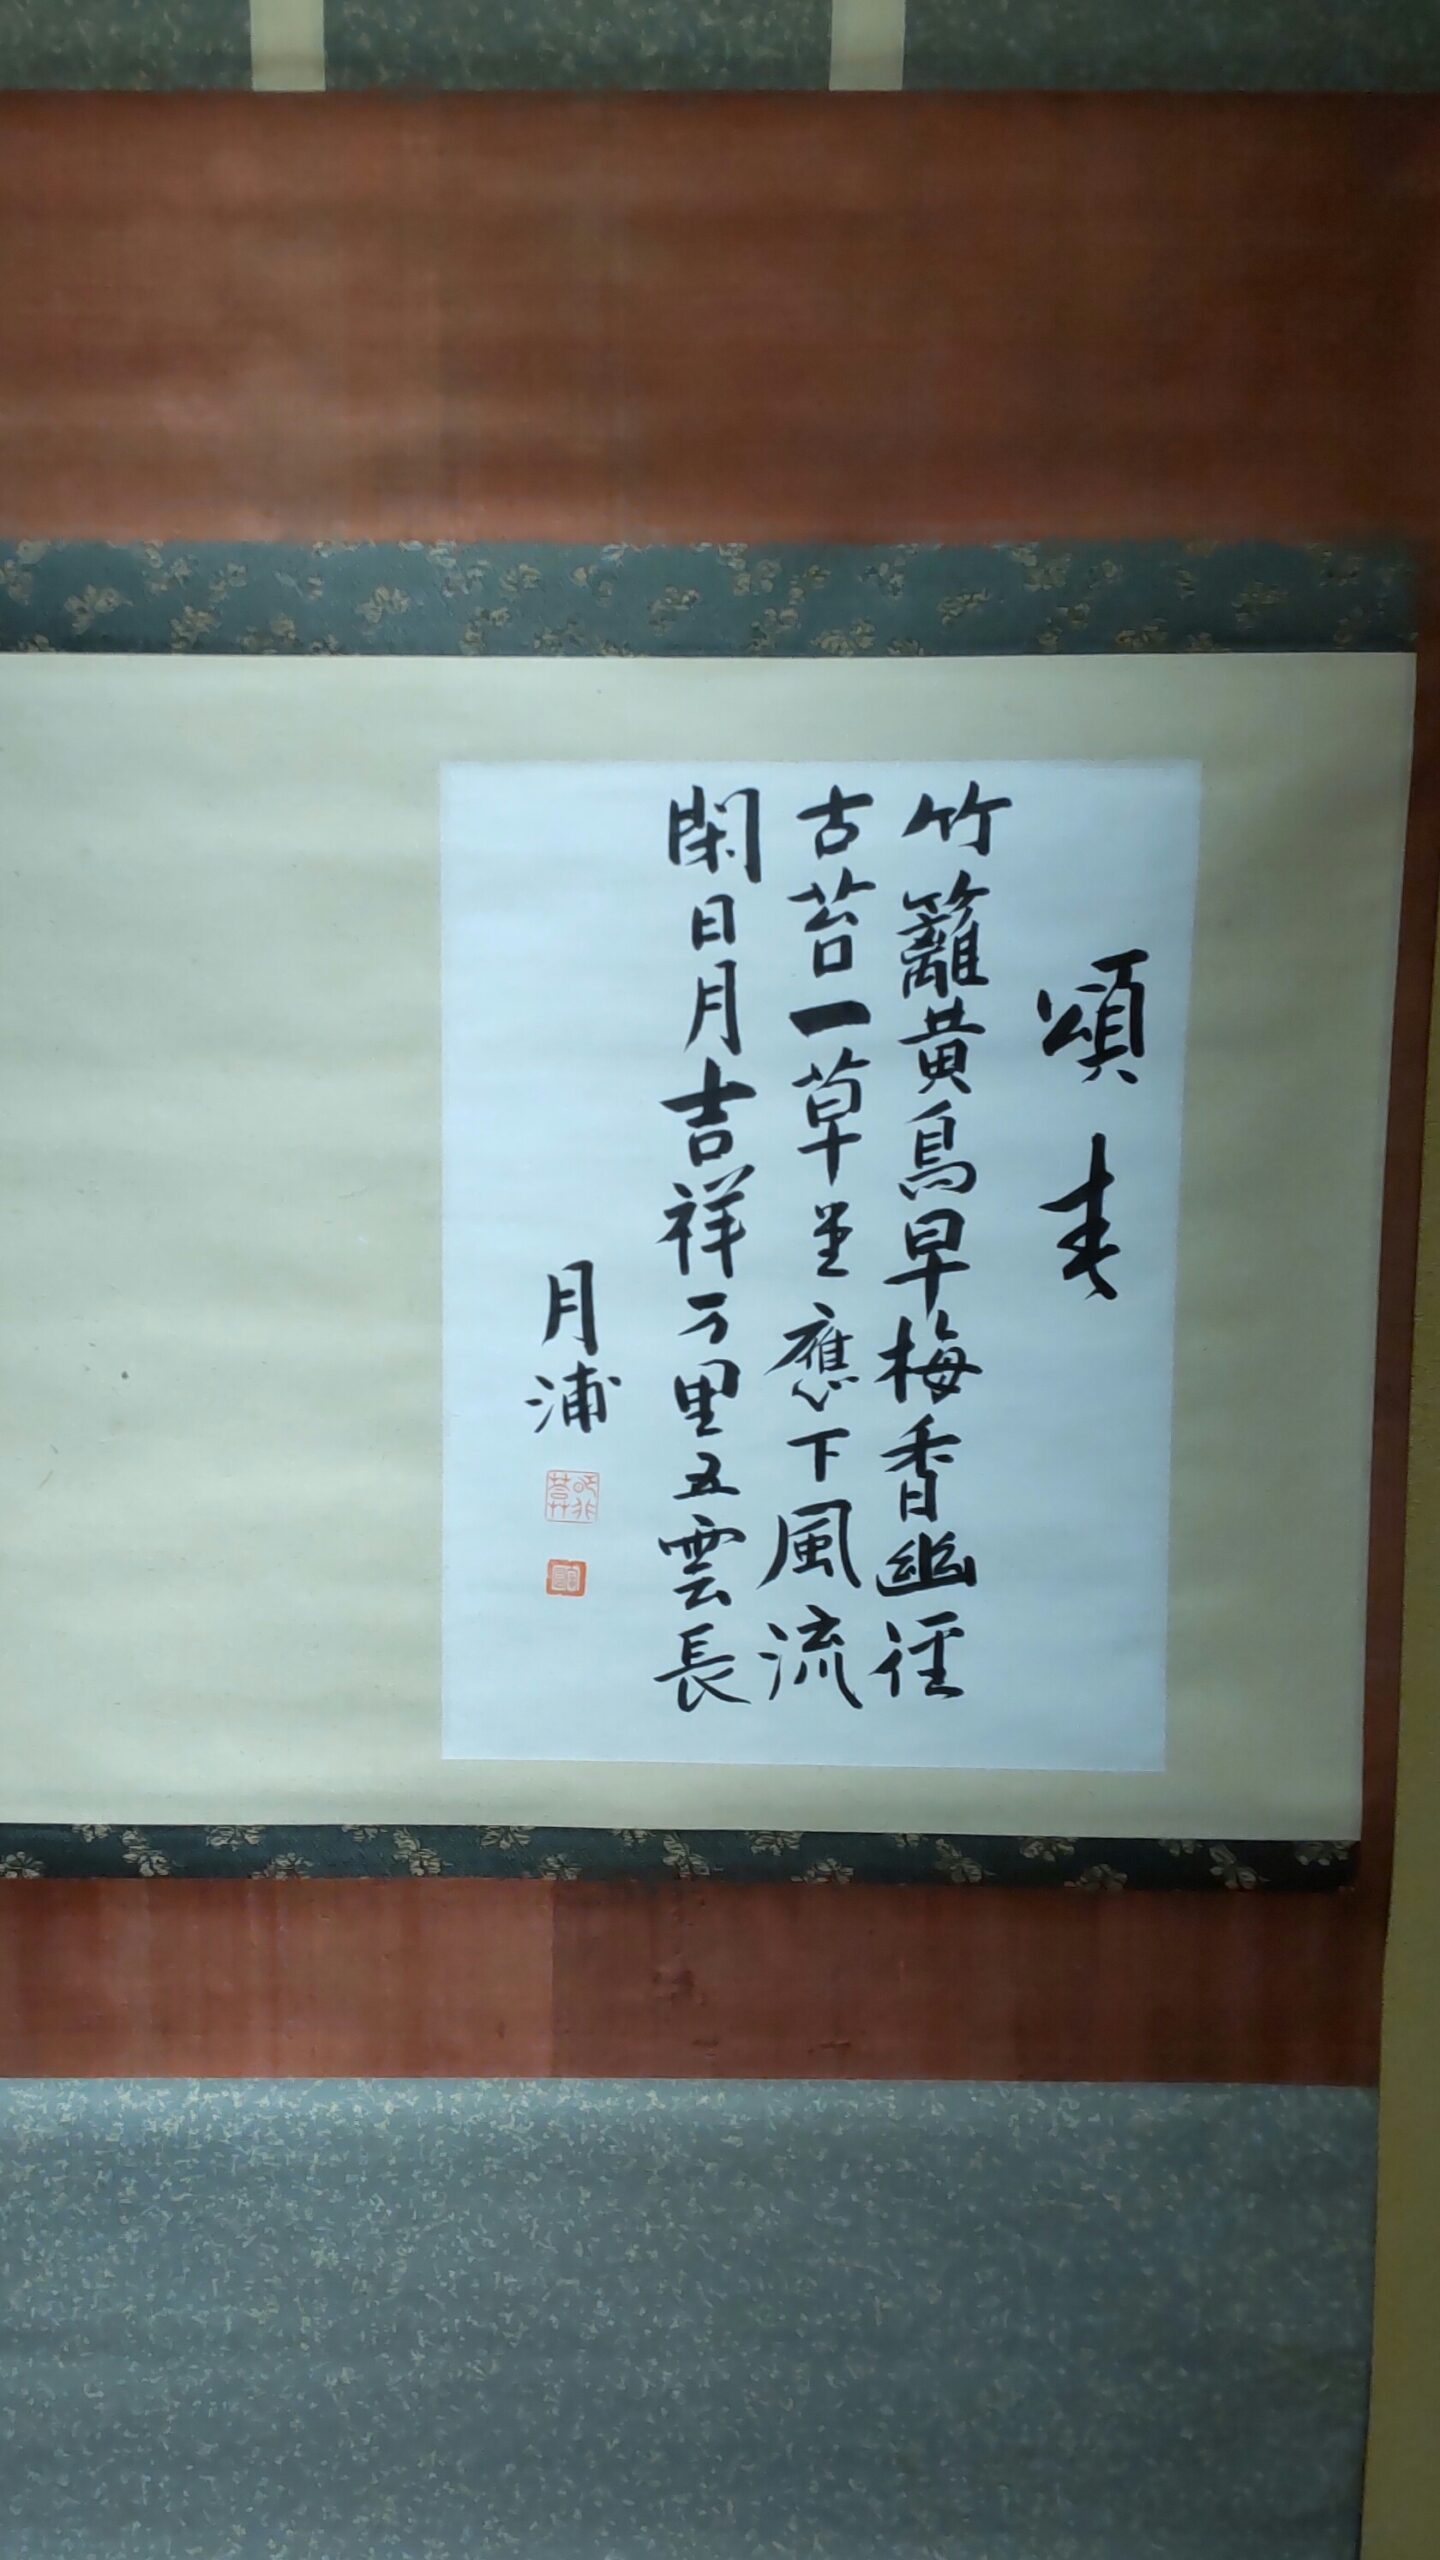 頌春
竹籬黄鳥早梅香幽径
古苔一草堂應下風流
閑日月吉祥万里五雲長
月浦